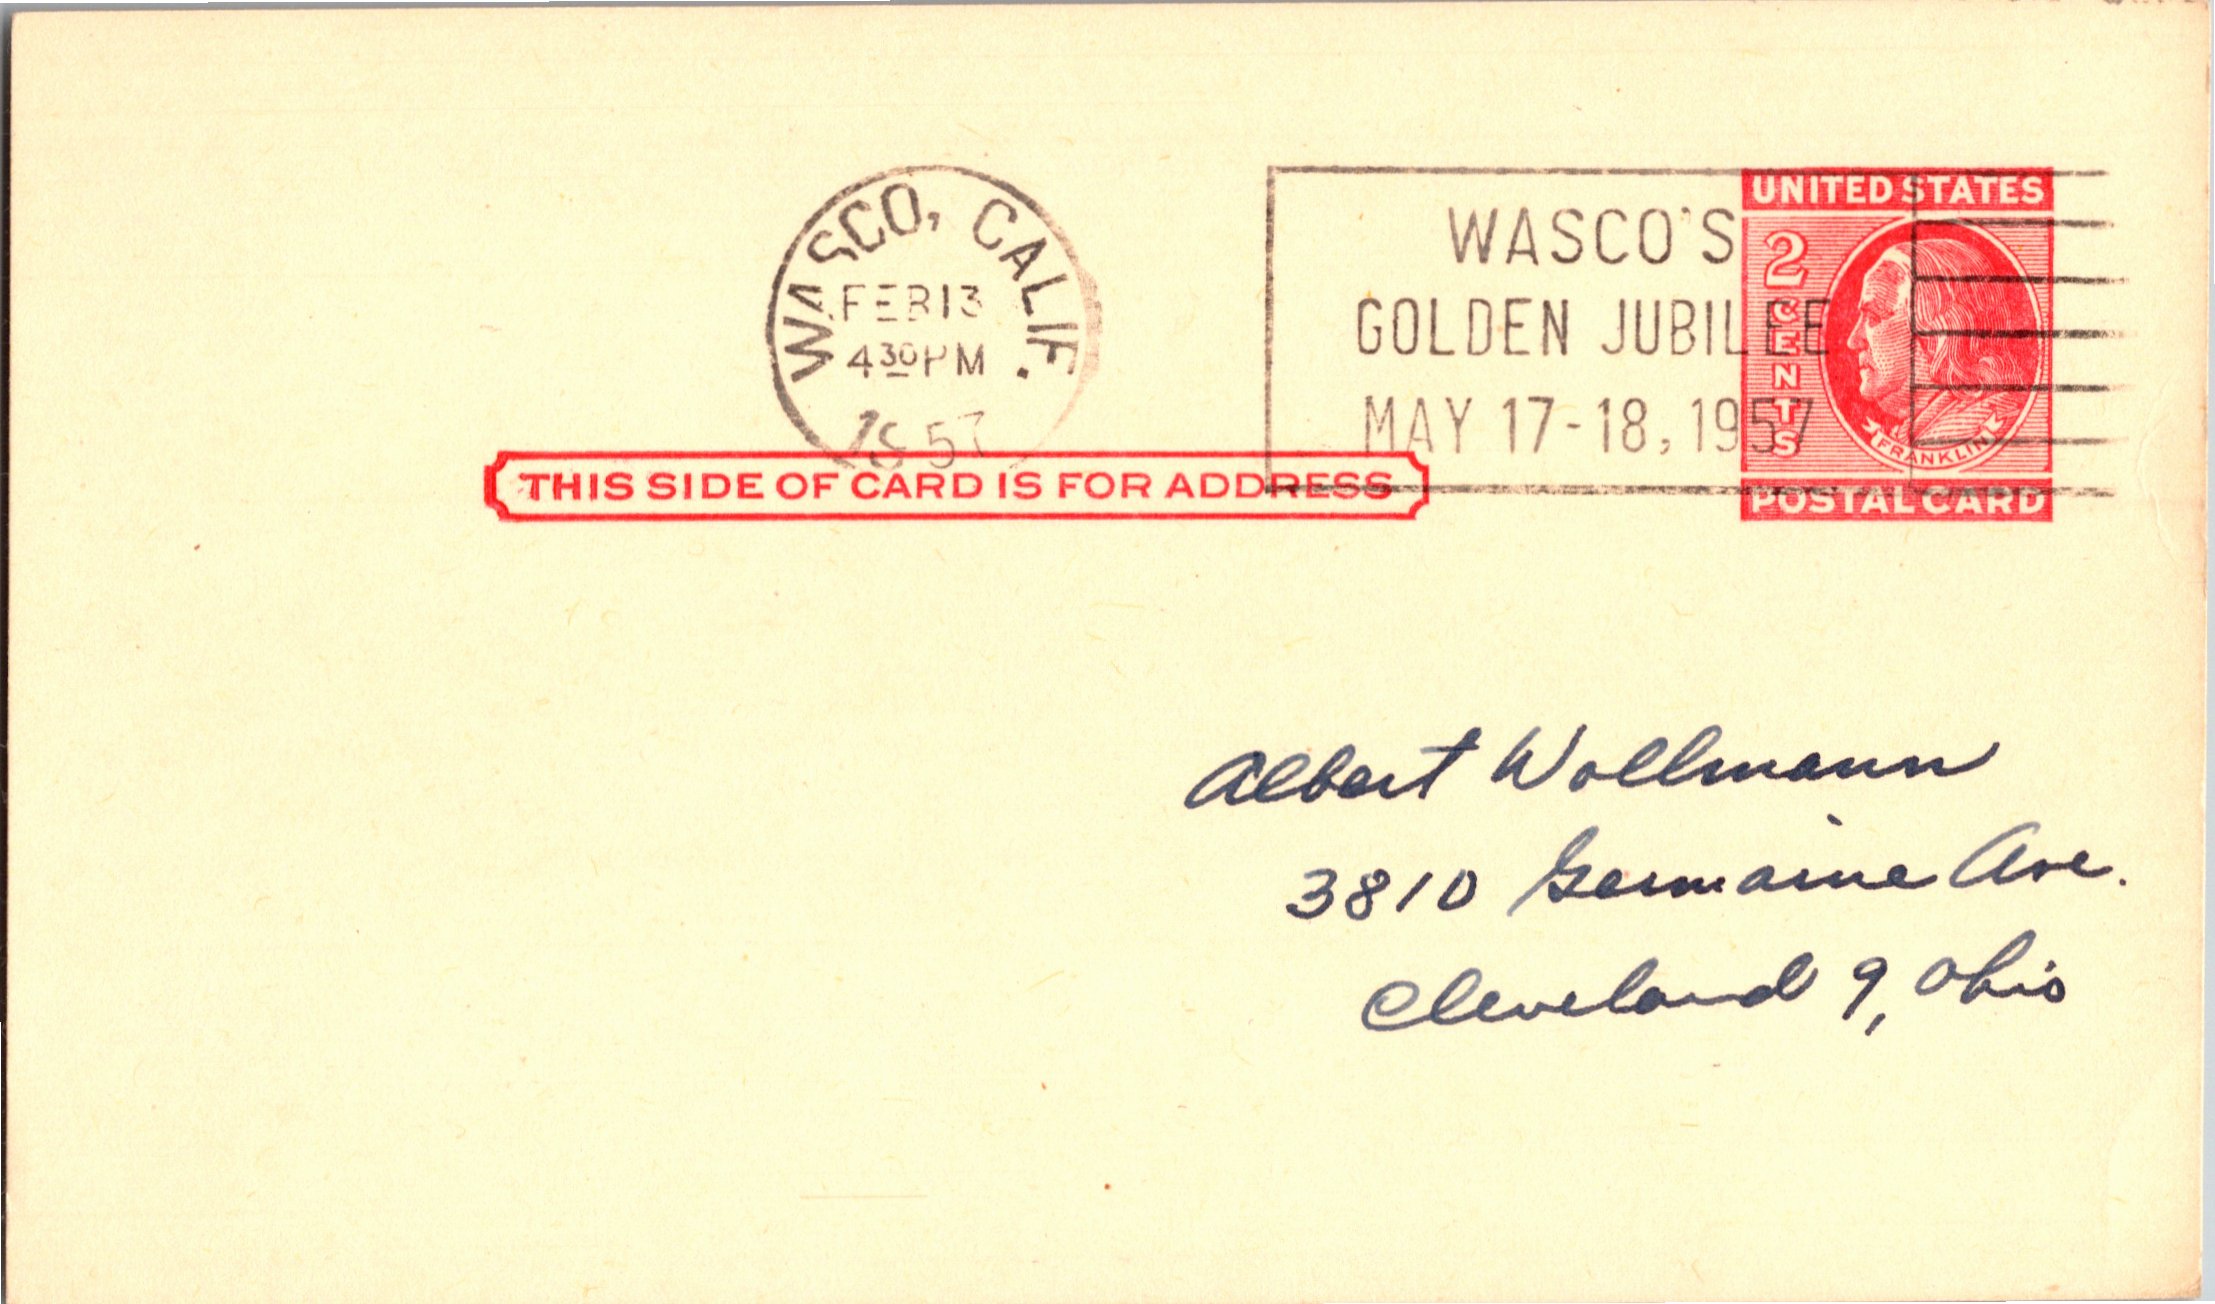 WASCO, CALIF.
FEB 13
4 30 PM
1957
WASCO'S
GOLDEN JUBILEE
MAY 17-18, 1957
UNITED STATES
2
CENTS
FRANKLIN
POSTAL CARD
THIS SIDE OF CARD IS FOR ADDRESS
Albert Wollmann
3810 Germaine Ave.
Cleveland 9, Ohio